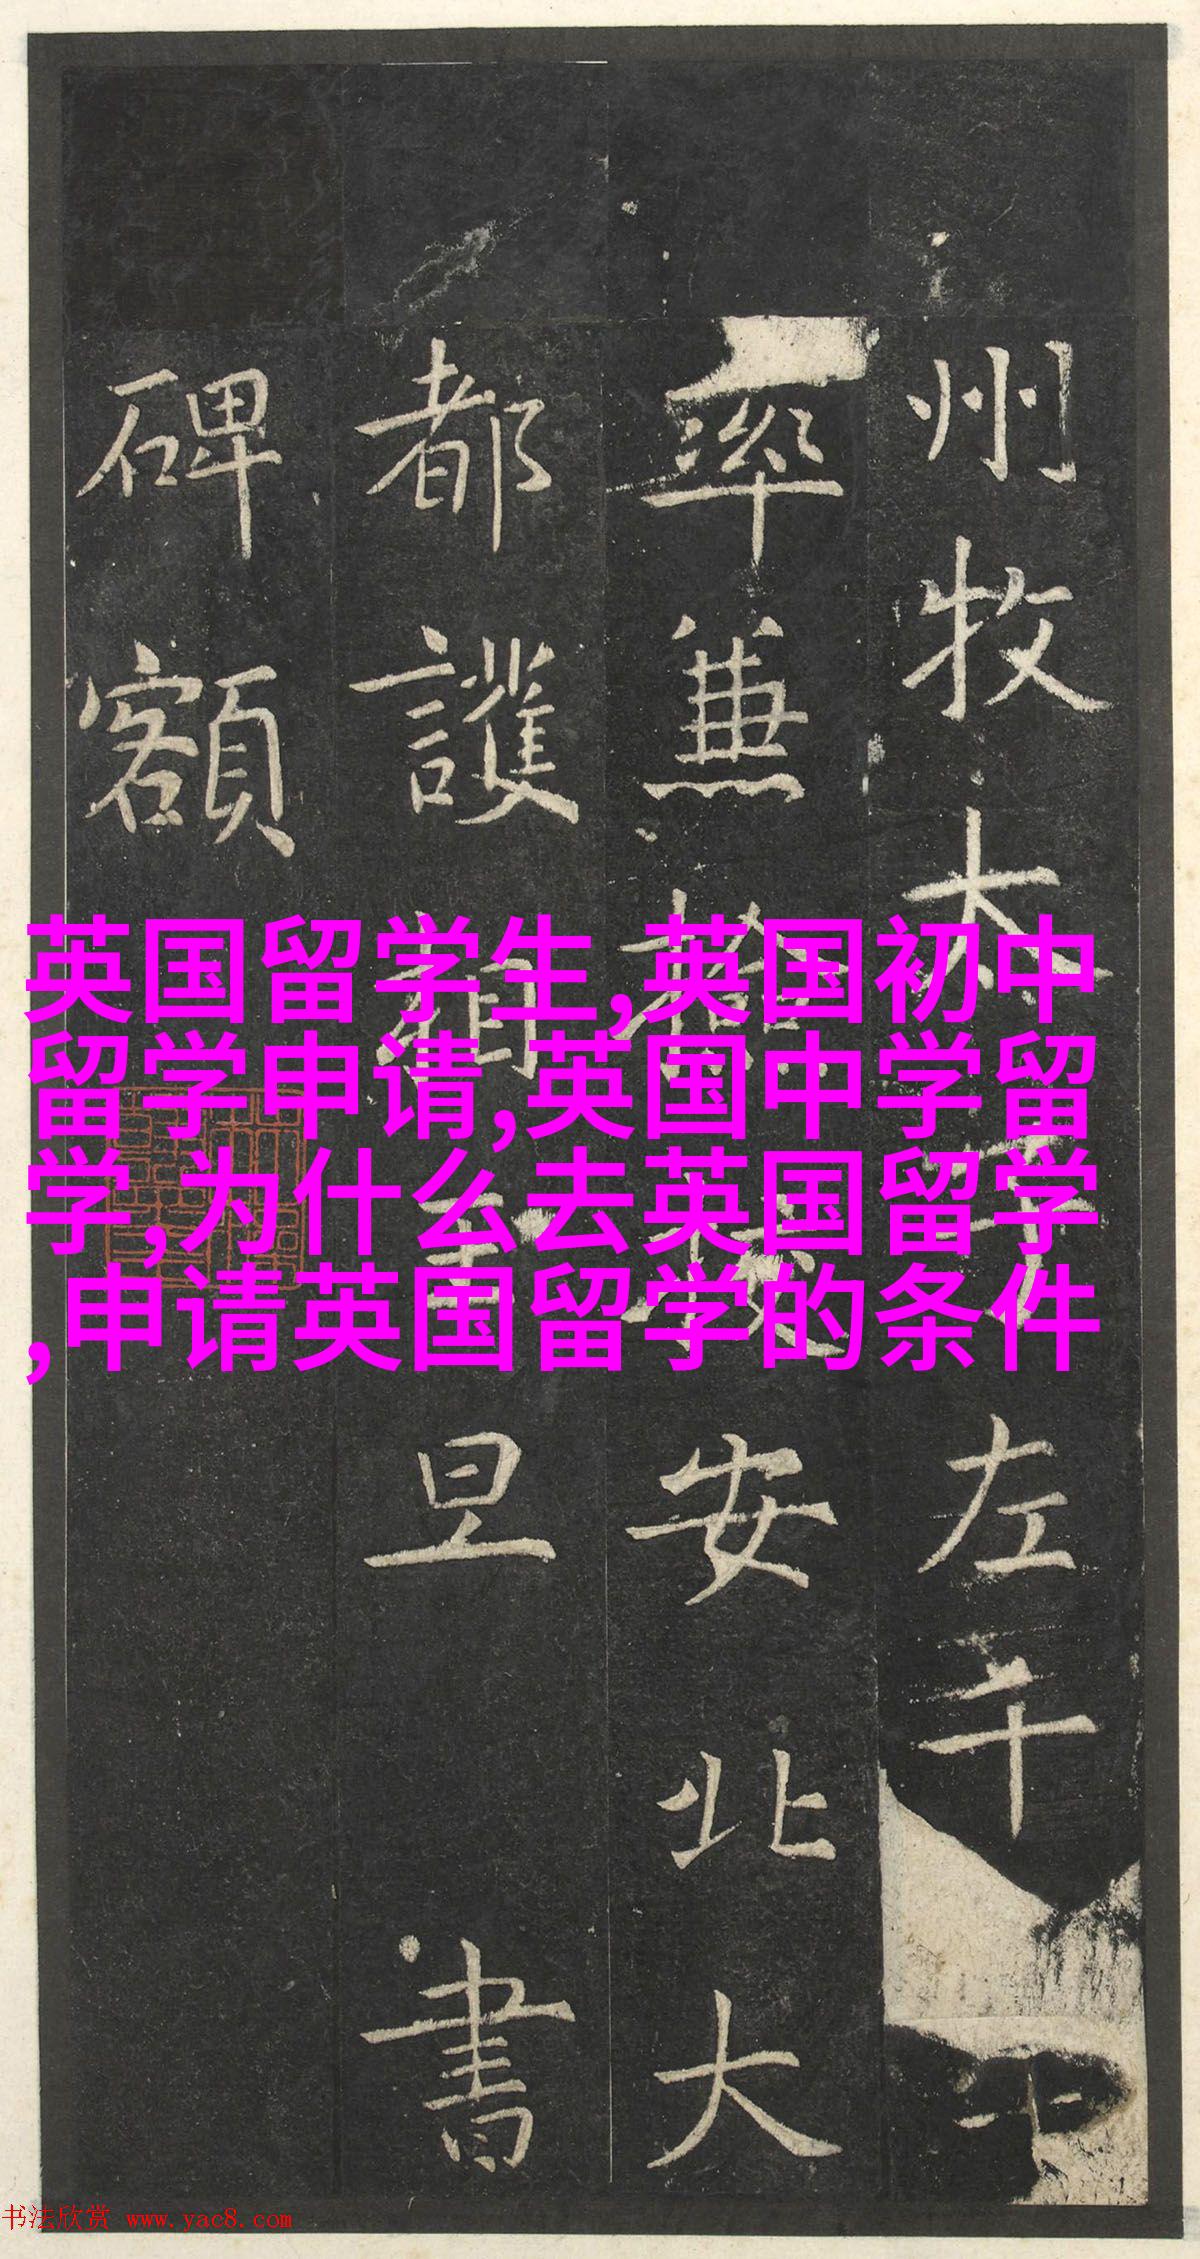 州牧太子左千
率兼檢校安北大
都護相王旦書
碑額
英国留学生,英国初中
留学申请,英国中学留
学,为什么去英国留学
,申请英国留学的条件
书法欣赏 www.yac8.com